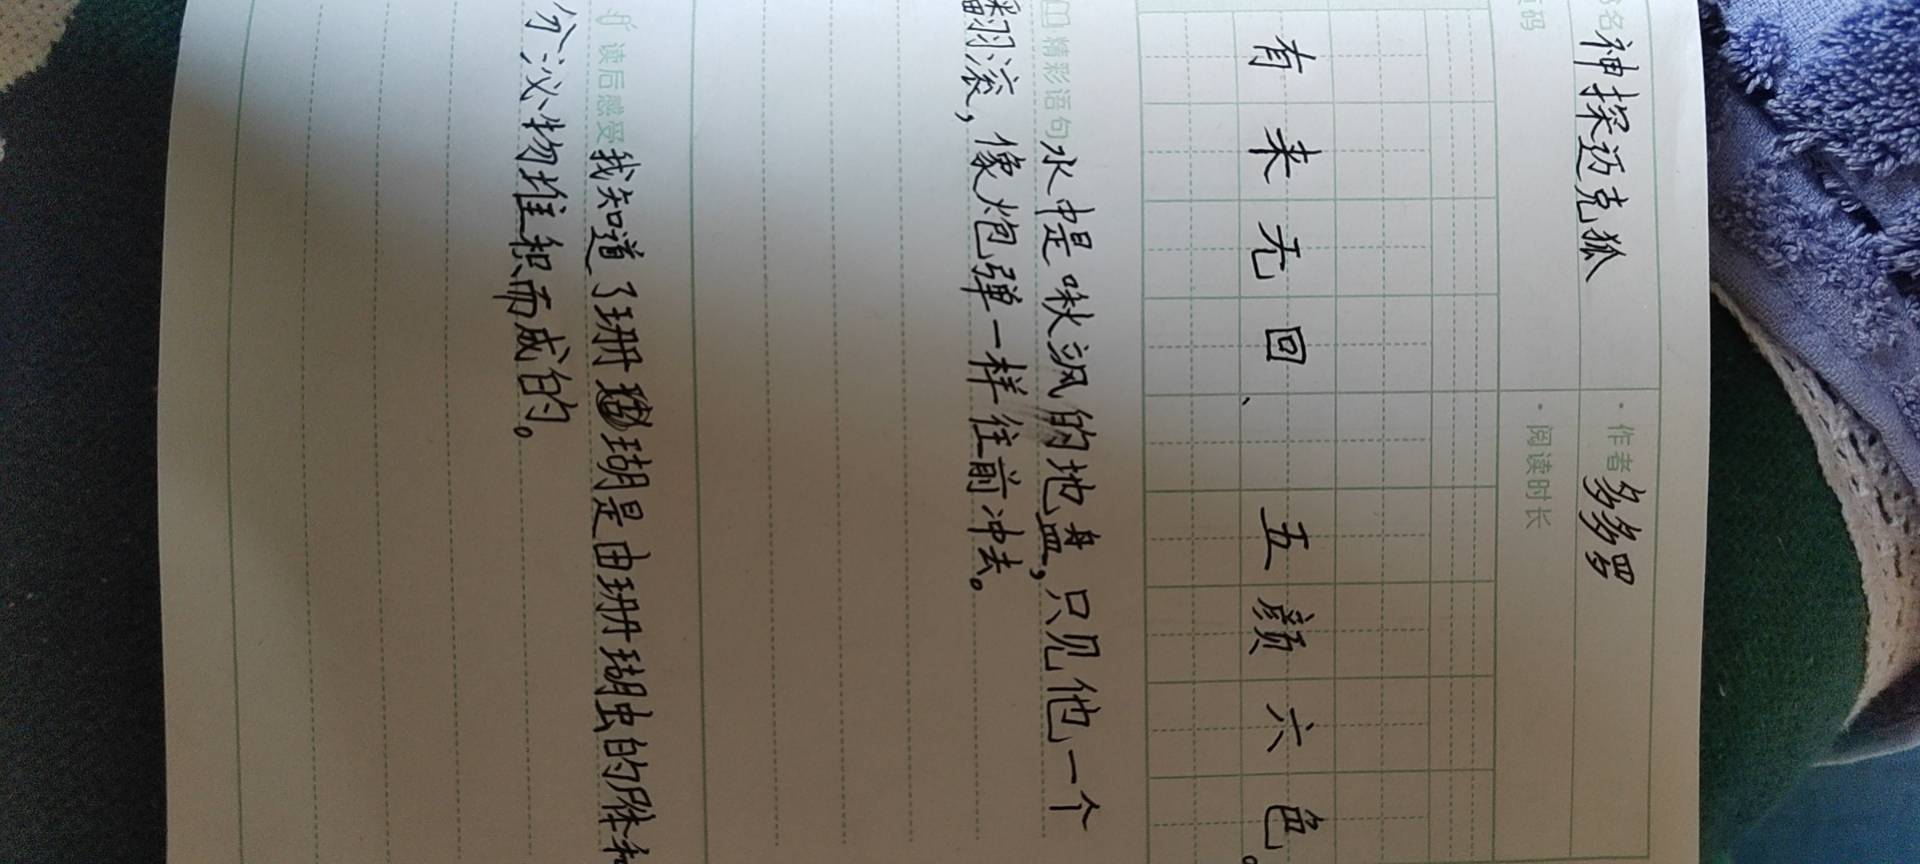 书名 神探迈克狐 · 作者 多多罗
页码 · 阅读时长
有来无回、五颜六色。
精彩语句 水中是啾飒的地盘,只见他一个
翻滚,像炮弹一样往前冲去。
读后感受 我知道了珊瑚是由珊瑚虫的尸体和
分泌物堆积而成的。